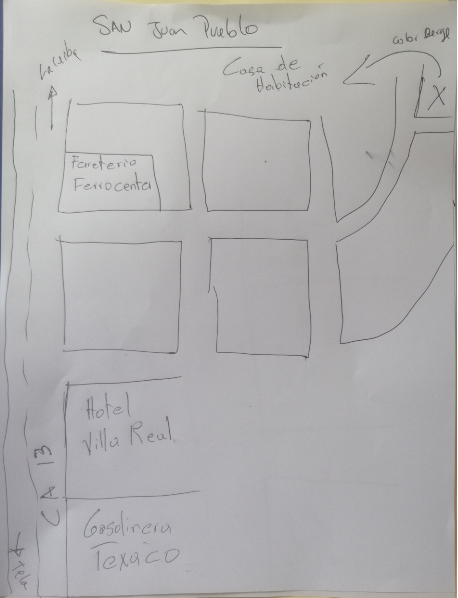 SAN Juan Pueblo
La Ceiba
Casa de
Habitación
Color Beige
X
Ferreteria
Ferrocenter
Hotel
Villa Real
CA 13
Gasolinera
Texaco
Tela